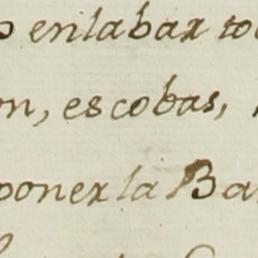 enlabar
escobas,
poner la Ba